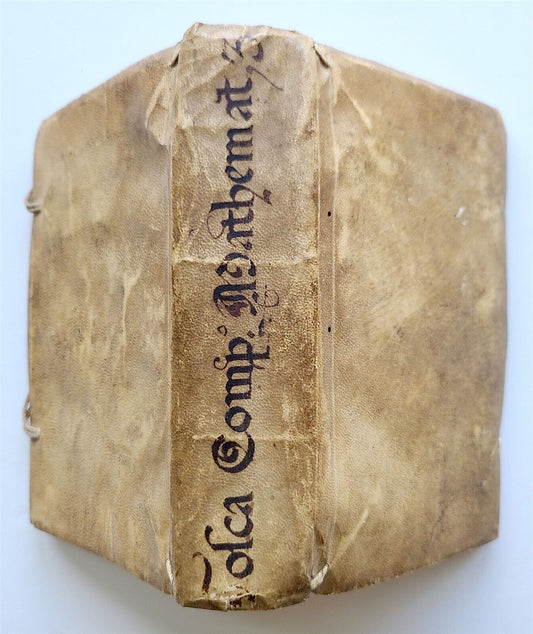 Tosca Comp.º Mathemat, 3